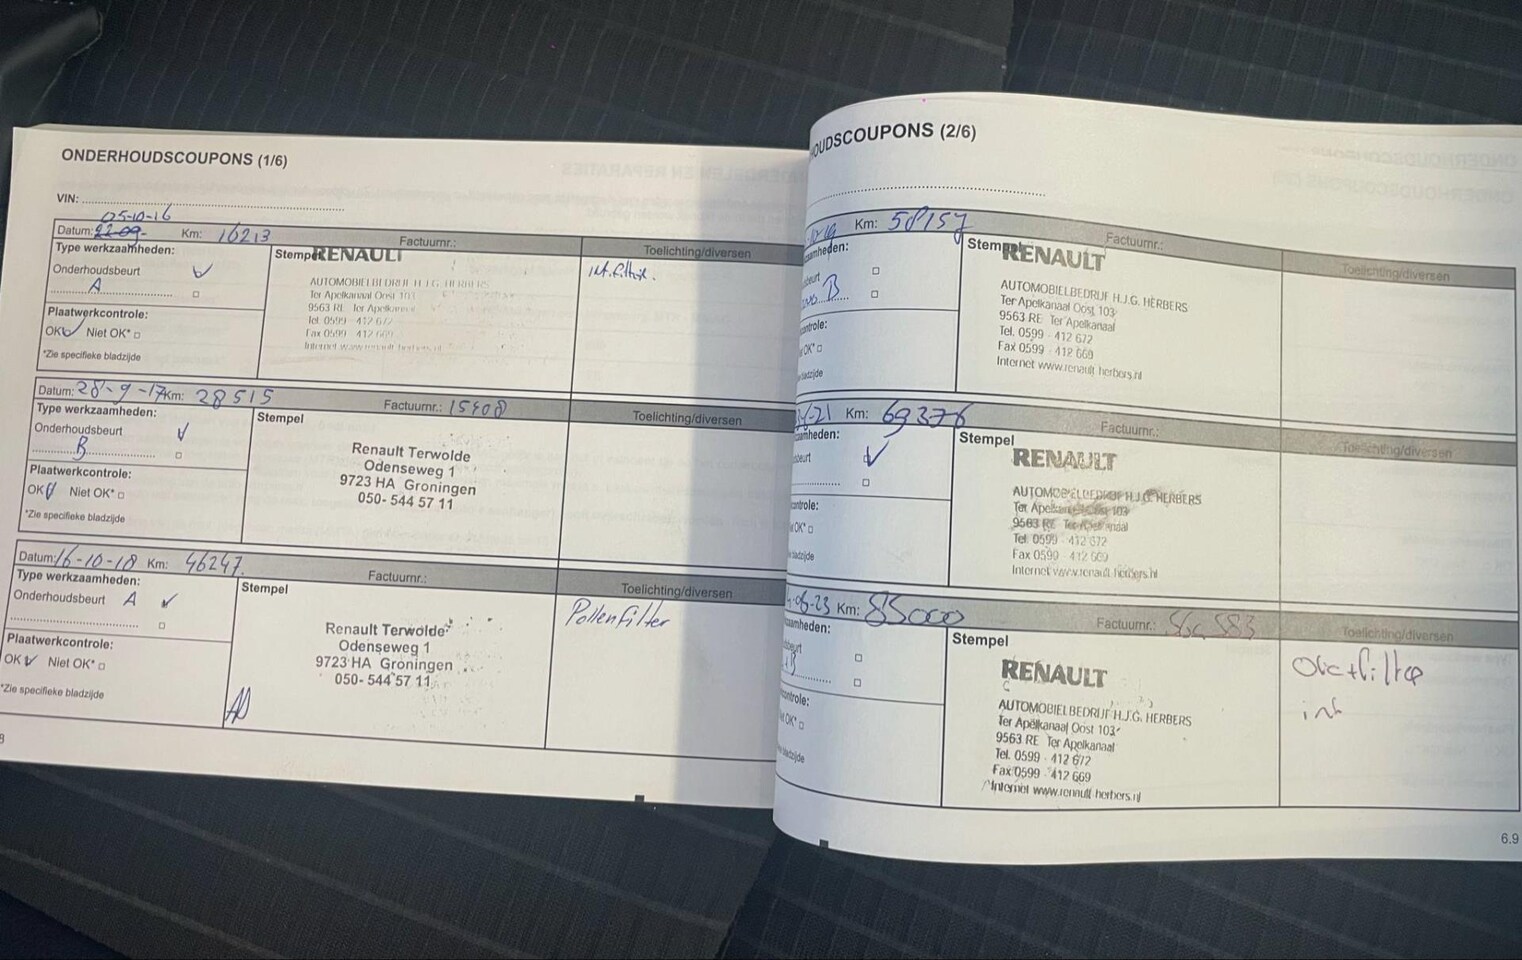 ONDERHOUDSCOUPONS (1/6)
VIN:
05-10-16
Datum: 22-09- Km: 16213 Factuurnr.:
Type werkzaamheden: Stempel RENAULT Toelichting/diversen
Onderhoudsbeurt
A
AUTOMOBIELBEDRIJF H.J.G. HERBERS
Ter Apelkanaal Oost 103
9563 RE Ter Apelkanaal
Tel. 0599 - 412 672
Fax 0599 - 412 669
Internet www.renault-herbers.nl
Plaatwerkcontrole:
OK Niet OK*
*Zie specifieke bladzijde
Datum: 28-9-17 Km: 28515 Factuurnr.: 15408
Type werkzaamheden: Stempel Toelichting/diversen
Onderhoudsbeurt
B
Renault Terwolde
Odenseweg 1
9723 HA Groningen
050- 544 57 11
Plaatwerkcontrole:
OK Niet OK*
*Zie specifieke bladzijde
Datum: 16-10-18 Km: 46247 Factuurnr.:
Type werkzaamheden: Stempel Toelichting/diversen
Onderhoudsbeurt A
Pollenfilter
Renault Terwolde
Odenseweg 1
9723 HA Groningen
050- 544 57 11
Plaatwerkcontrole:
OK Niet OK*
*Zie specifieke bladzijde
8
HOUDSCOUPONS (2/6)
Km: 58157 Factuurnr.:
zaamheden: Stempel RENAULT Toelichting/diversen
beurt
B
AUTOMOBIELBEDRIJF H.J.G. HERBERS
Ter Apelkanaal Oost 103
9563 RE Ter Apelkanaal
Tel. 0599 - 412 672
Fax 0599 - 412 669
Internet www.renault-herbers.nl
controle:
OK*
bladzijde
-21 Km: 69376 Factuurnr.:
zaamheden: Stempel Toelichting/diversen
beurt
RENAULT
AUTOMOBIELBEDRIJF H.J.G. HERBERS
Ter Apelkanaal Oost 103
9563 RE Ter Apelkanaal
Tel. 0599 - 412 672
Fax 0599 - 412 669
Internet www.renault-herbers.nl
controle:
OK*
bladzijde
-06-23 Km: 85000 Factuurnr.:
zaamheden: Stempel Toelichting/diversen
beurt
B
RENAULT
AUTOMOBIELBEDRIJF H.J.G. HERBERS
Ter Apelkanaal Oost 103
9563 RE Ter Apelkanaal
Tel. 0599 - 412 672
Fax 0599 - 412 669
Internet www.renault-herbers.nl
controle:
OK*
bladzijde
6.9